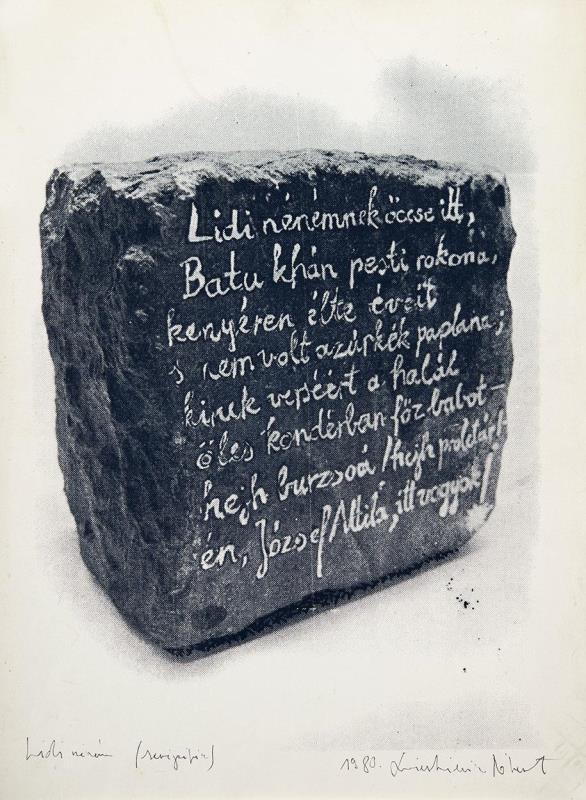 Lidi nénémnek öccse itt,
Batu khán pesti rokona,
kenyéren élte éveit
s nem volt azúrkék paplana;
kinek verséért a halál
öles kondérban főz babot –
hejh burzsoá! hejh proletár! –
én, József Attila, itt vagyok!
Lidi néném
1980.